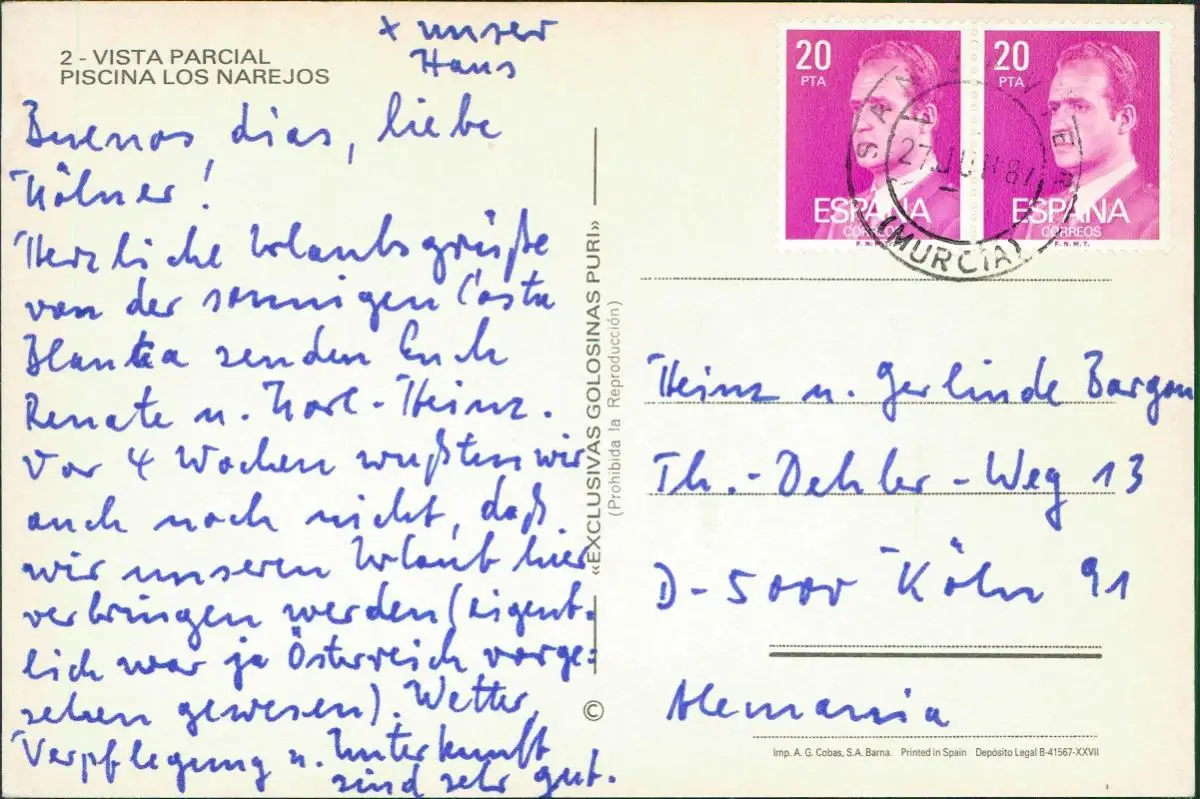 2 - VISTA PARCIAL
PISCINA LOS NAREJOS
+ unser
Haus
Buenos dias, liebe
Kölner!
Herzliche Urlaubsgrüße
von der sonnigen Costa
Blanca senden Euch
Renate u. Karl-Heinz.
Vor 4 Wochen wußten wir
auch noch nicht, daß
wir unseren Urlaub hier
verbringen werden (eigent-
lich war ja Österreich vorge-
sehen gewesen). Wetter,
Verpflegung u. Unterkunft
sind sehr gut.
«EXCLUSIVAS GOLOSINAS PURI»
(Prohibida la Reproducción)
©
20
PTA
ESPAÑA
CORREOS
F.N.M.T.
20
PTA
ESPAÑA
CORREOS
F.N.M.T.
27 JUN 81
(MURCIA)
Heinz u. Gerlinde Bargon
Th.-Dehler-Weg 13
D-5000 Köln 91
Alemania
Imp. A. G. Cobas, S.A. Barna. Printed in Spain Depósito Legal B-41567-XXVII